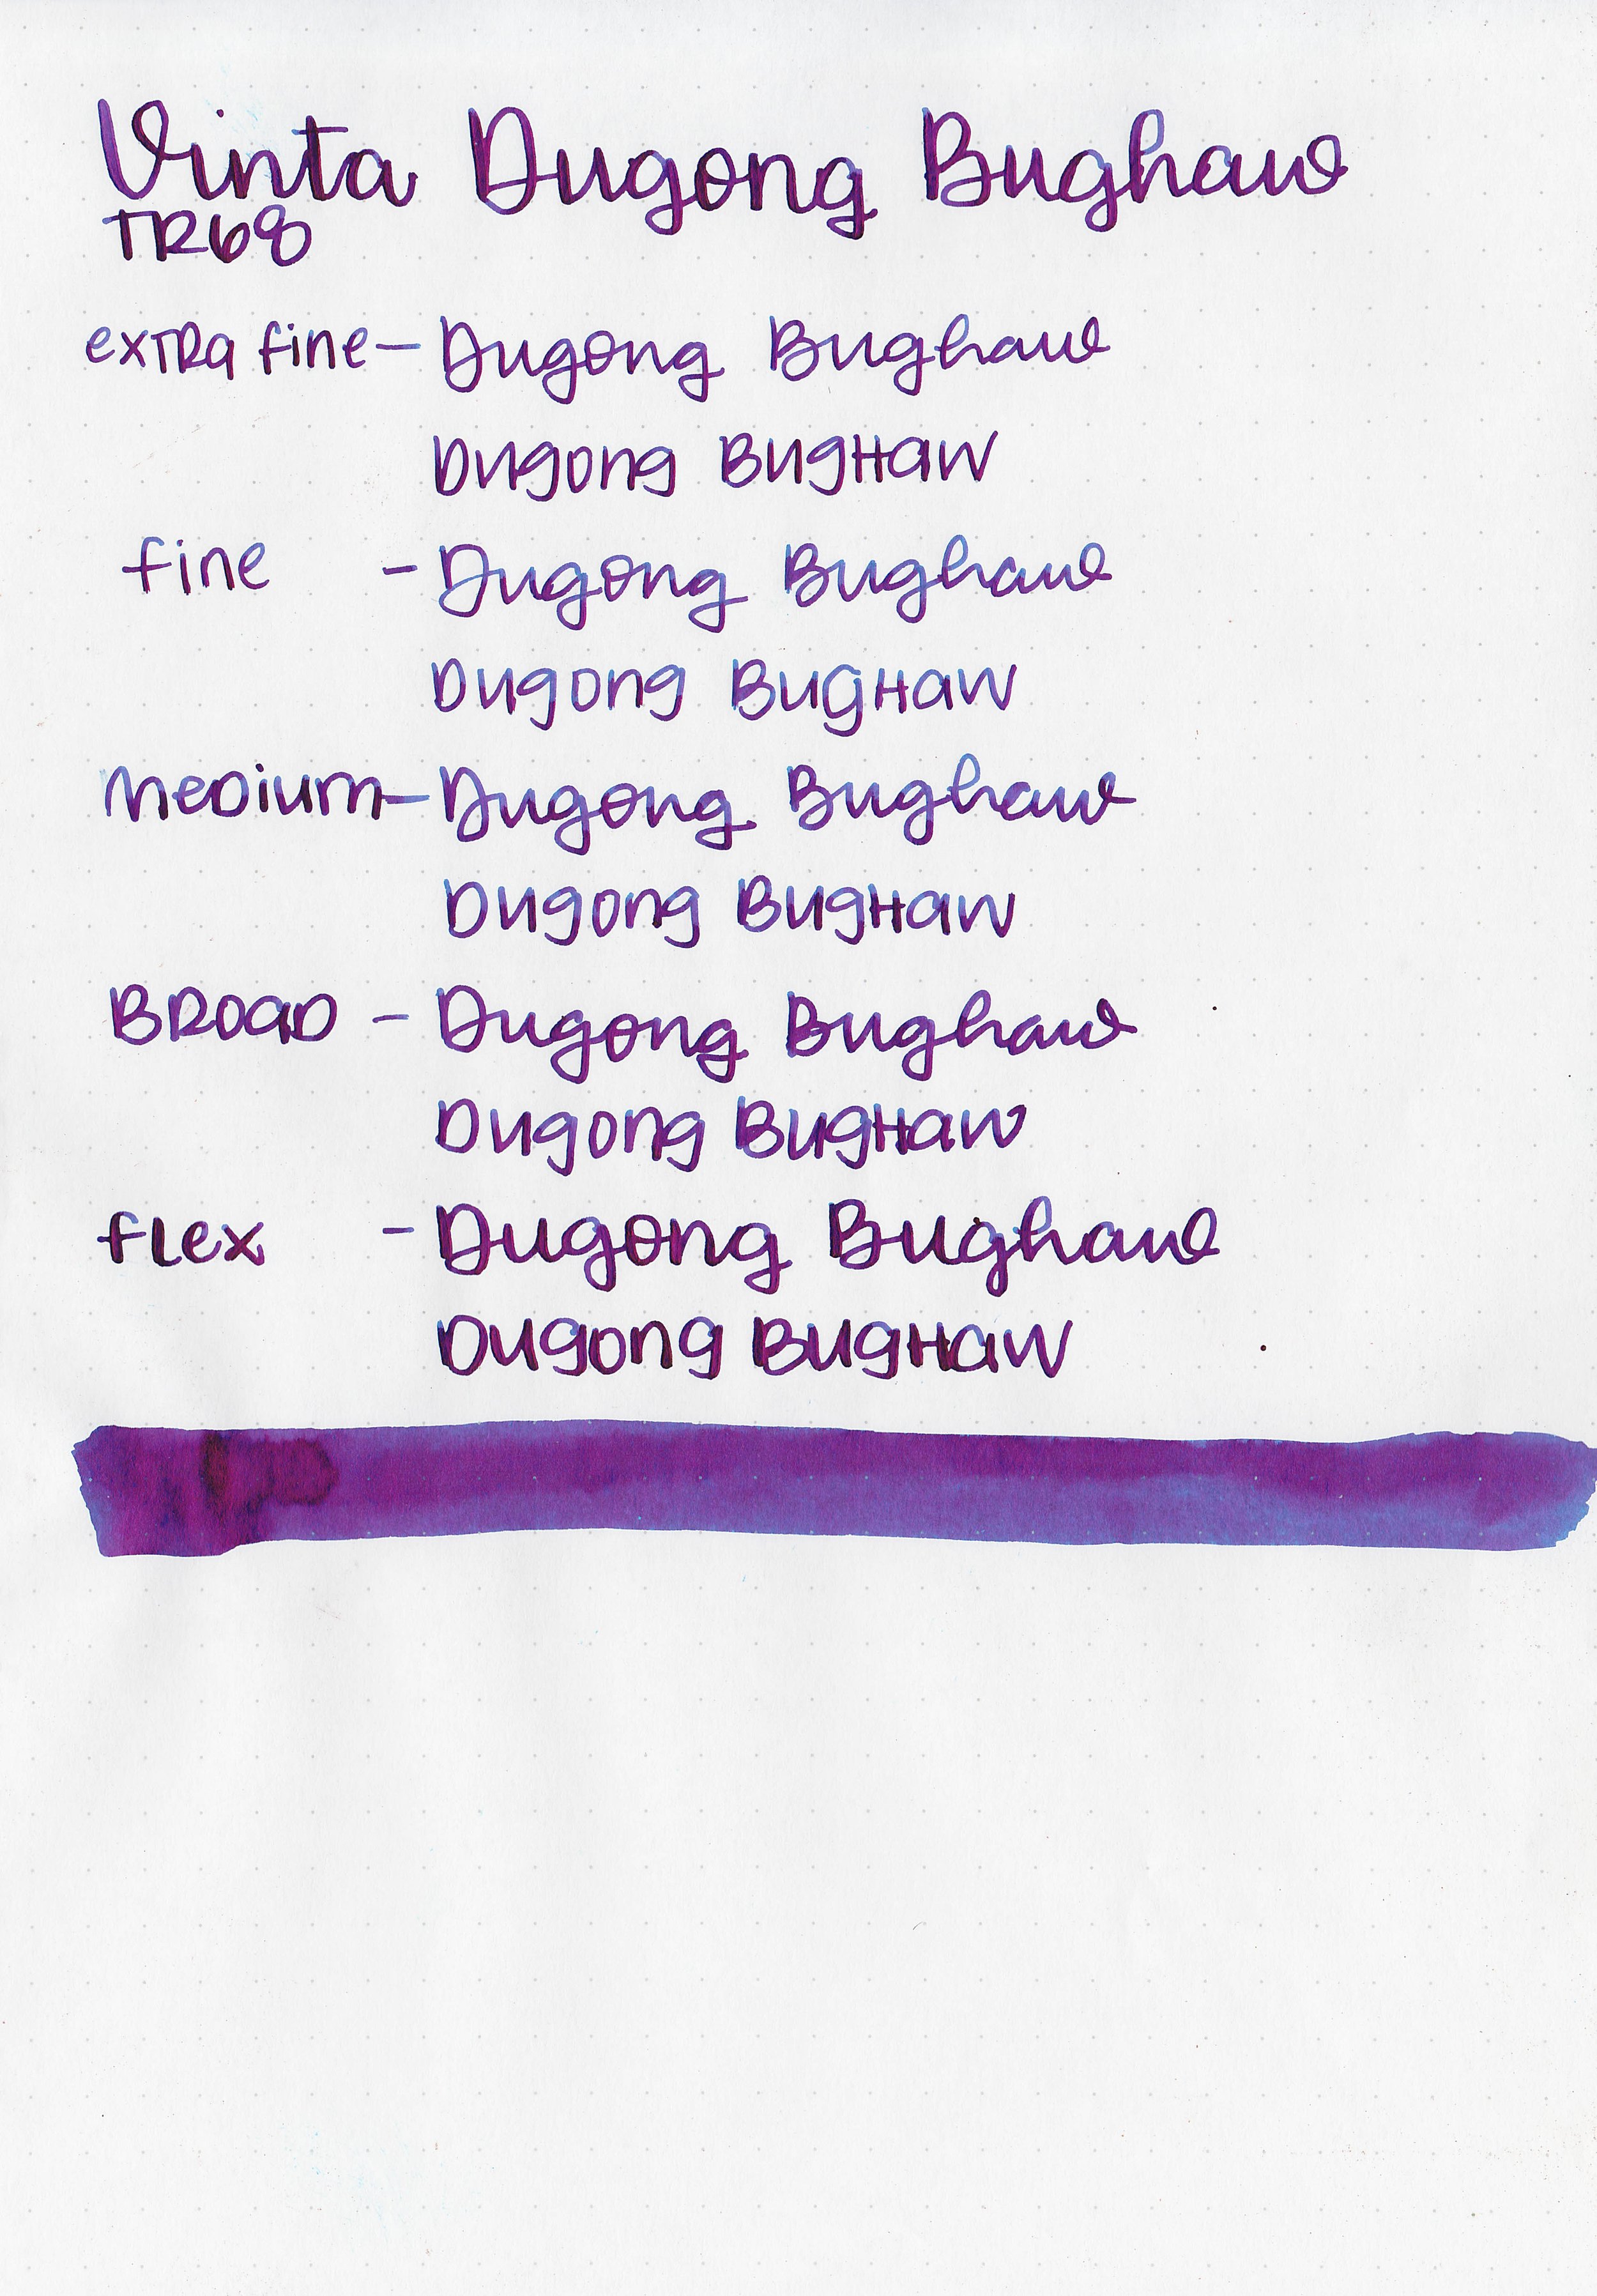 Vinta Dugong Bughaw
TR68
extra fine - Dugong Bughaw
Dugong BugHaw
fine - Dugong Bughaw
Dugong BugHaw
Medium - Dugong Bughaw
Dugong BugHaw
BROAD - Dugong Bughaw
Dugong BugHaw
flex - Dugong Bughaw
Dugong BugHaw